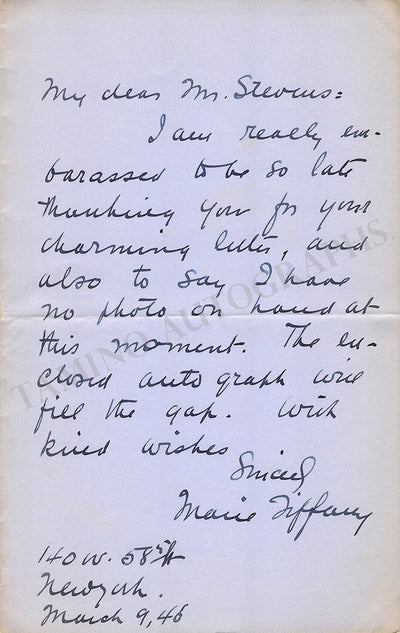 My dear Mr. Stevens:
I am really em-
barassed to be so late
thanking you for your
charming letter, and
also to say I have
no photo on hand at
this moment. The en-
closed autograph will
fill the gap. With
kind wishes
Sincerely
Marie Tiffany
140 W. 58th St
New York.
March 9, 46
TAMINO AUTOGRAPHS